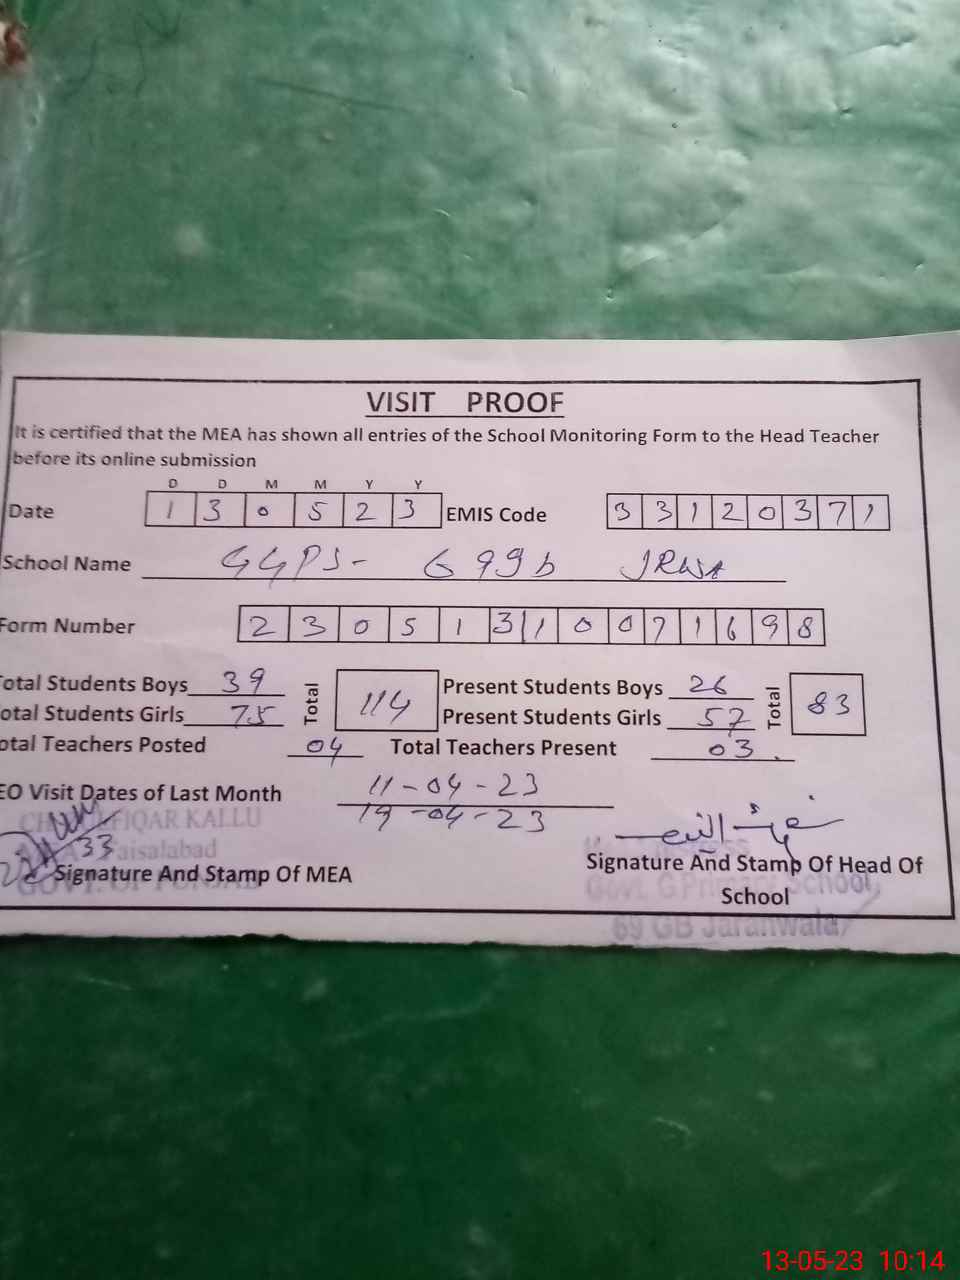 VISIT PROOF
It is certified that the MEA has shown all entries of the School Monitoring Form to the Head Teacher
before its online submission
D D M M Y Y
Date 1 3 0 5 2 3 EMIS Code 3 3 1 2 0 3 7 1
School Name GGPS- 69gb JRWA
Form Number 2 3 0 5 1 3 1 0 0 7 1 6 9 8
otal Students Boys 39 Total 114 Present Students Boys 26 Total 83
otal Students Girls 75 Present Students Girls 57
otal Teachers Posted 04 Total Teachers Present 03
EO Visit Dates of Last Month 11-04-23
19-04-23
FIQAR KALLU
33 Faisalabad
Signature And Stamp Of MEA
GOVT. OF PUNJAB
Signature And Stamp Of Head Of
School
Govt. G Primary School
69 GB Jaranwala
13-05-23 10:14